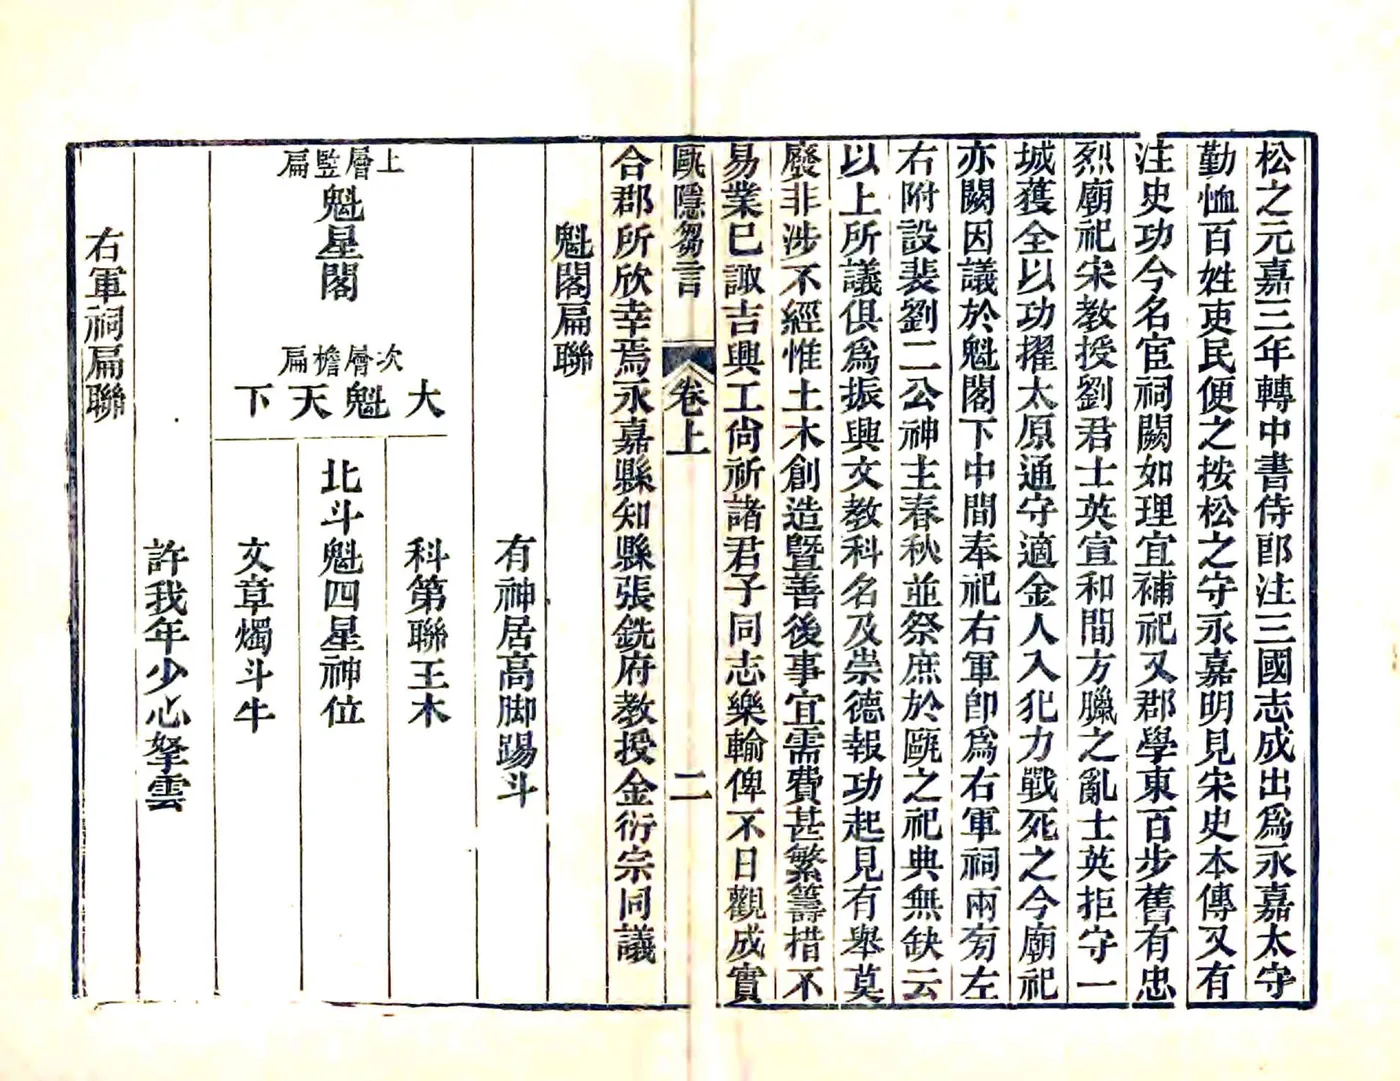 松之元嘉三年轉中書侍郎注三國志成出爲永嘉太守
勤恤百姓吏民便之按松之守永嘉明見宋史本傳又有
注史功今名宦祠闕如理宜補祀又郡學東百步舊有忠
烈廟祀宋教授劉君士英宣和間方臘之亂士英拒守一
城獲全以功擢太原通守適金人入犯力戰死之今廟祀
亦闕因議於魁閣下中間奉祀右軍卽爲右軍祠兩㫄左
右附設裴劉二公神主春秋並祭庶於甌之祀典無缺云
以上所議俱爲振興文教科名及崇德報功起見有舉莫
廢非涉不經惟土木創造曁善後事宜需費甚繁籌措不
易業已諏吉興工尙祈諸君子同志樂輸俾不日觀成實
甌隱芻言
卷上
二
合郡所欣幸焉永嘉縣知縣張銑府教授金衍宗同議
魁閣扁聯
有神居高脚踢斗
上層豎扁
魁星閣
次層檐扁
大魁天下
科第聯王木
北斗魁四星神位
文章燭斗牛
許我年少心拏雲
右軍祠扁聯